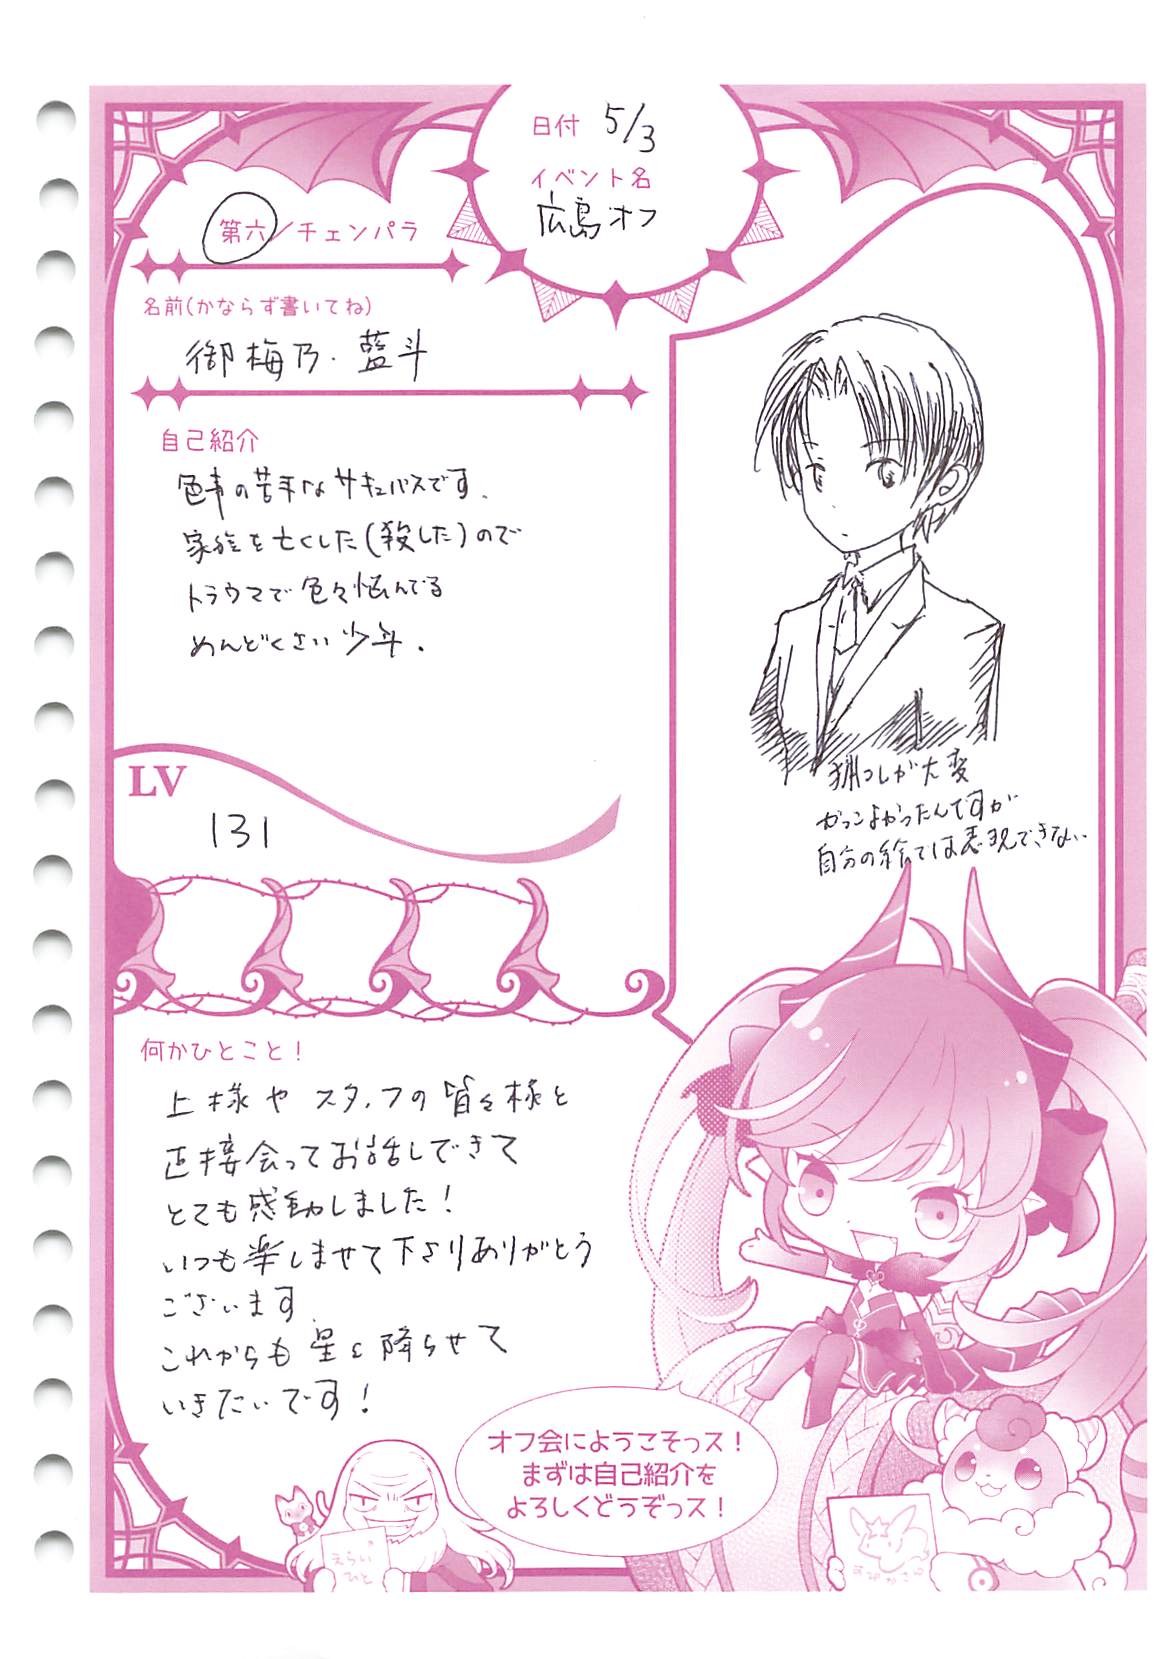 日付 5/3
イベント名
広島オフ
第六/チェンパラ
名前(かならず書いてね)
御梅乃・藍斗
自己紹介
色事の苦手なサキュバスです.
家族を亡くした(殺した)ので
トラウマで色々悩んでる
めんどくさい少年.
LV
131
猟フレが大変
かっこよかったんですが
自分の絵では表現できない..
何かひとこと!
上様やスタッフの皆々様と
直接会ってお話しできて
とても感動しました!
いつも楽しませて下さりありがとう
ございます.
これからも星を降らせて
いきたいです!
オフ会にようこそっス!
まずは自己紹介を
よろしくどうぞっス!
えらい
ひと